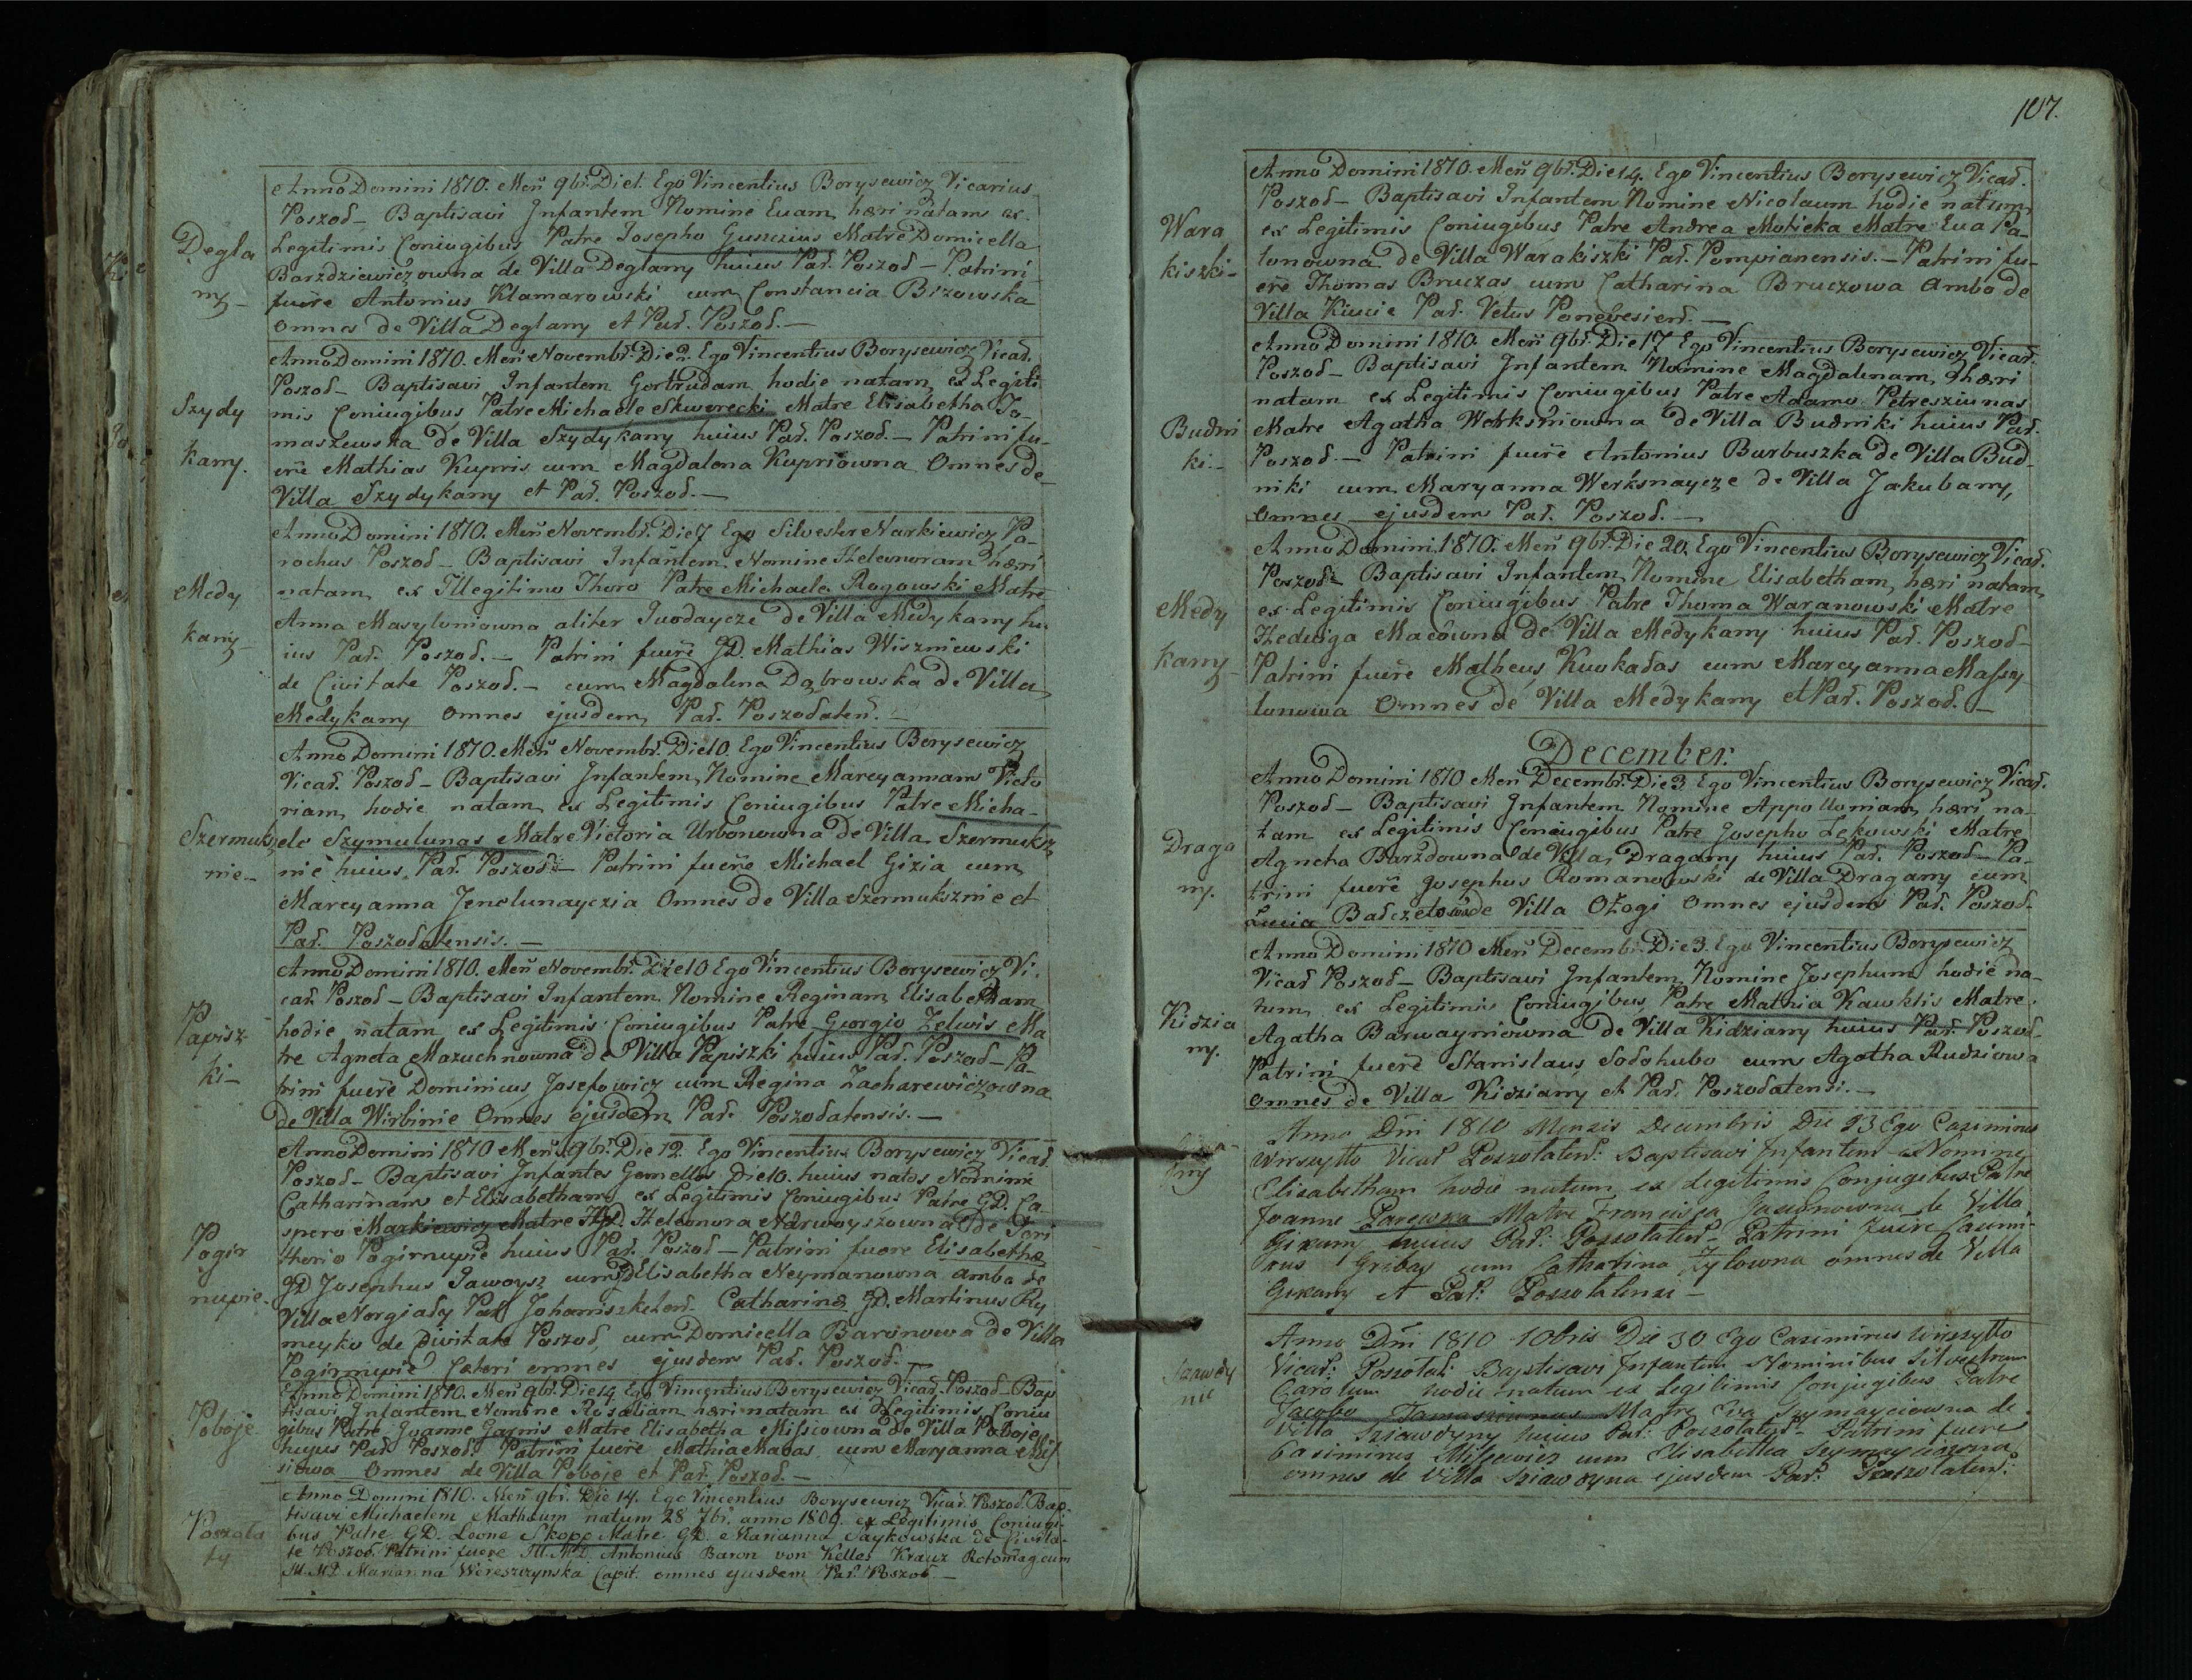 Anno Domini 1810. Men̄ 9br̄. Die 1. Ego Vincentius Borysewicz Vicarius
Poszoł– Baptisavi Infantem Nomine Evam hæri natam ex
Degla
Legitimis Coniugibus Patre Josepho Guszczius Matre Domicella
Barzdziewiczowna de Villa Deglany huius Par̄. Poszoł – Patrini
ny–
fuēre Antonius Klamarowski cum Constancia Bizowska
omnes de Villa Deglany et Par̄. Poszoł.–
Anno Domini 1810. Men̄ Novembr̄. Die 2. Ego Vincentius Borysewicz Vicar̄.
Poszoł– Baptisavi Infantem Gertrudam hodie natam ex Legiti
Szydy
mis Coniugibus Patre Michaele Skworecki Matre Elisabetha To-
maszewska de Villa Szydykany huius Par̄. Poszoł.– Patrini fu-
kany.
erē Mathias Kupris cum Magdalena Kupriowna Omnes de
Villa Szydykany et Par̄. Poszoł.–
Anno Domini 1810. Men̄ Novembr̄. Die 7 Ego Silvester Narkiewicz Pa-
rochus Poszoł– Baptisavi Infantem Nomine Heleonoram hæri
Medy
natam ex Illegitimo Thoro Patre Michaele Rogowski Matre
Anna Masylunowna aliter Juodaycze de Villa Medykany hu
kany–
ius Par̄. Poszoł.– Patrini fuēre GD. Mathias Wiszniewski
de Civitate Poszoł.– cum Magdalena Dąbrowska de Villa
Medykany omnes ejusdem Par̄. Poszołaten̄.–
Anno Domini 1810. Men̄ Novembr̄. Die 10 Ego Vincentius Borysewicz
Vicar̄. Poszoł– Baptisavi Infantem Nomine Marcyannam Victo
riam hodie natam ex Legitimis Coniugibus Patre Micha-
Szermuksz
ele Szymulunas Matre Victoria Urbonowna de Villa Szermuksz
nie–
nie huius Par̄. Poszoł– Patrini fuēre Michael Gizia cum
Marcyanna Jenelunayczia Omnes de Villa Szermuksznie et
Par̄. Poszołatensis.–
Anno Domini 1810. Men̄ Novembr̄. Die 10 Ego Vincentius Borysewicz Vi-
car̄. Poszoł – Baptisavi Infantem Nomine Reginam Elisabetham
Papisz
hodie natam ex Legitimis Coniugibus Patre Georgio Zelwis Ma
tre Agneta Mazuchnowna de Villa Papiszki huius Par̄. Poszoł– Pa-
ki–
trini fuēre Dominicus Josefowicz cum Regina Zacharewiczowna
de Villa Wirbinie Omnes ejusdem Par̄. Poszołatensis.–
Anno Domini 1810 Men̄ 9br̄. Die 12. Ego Vincentius Borysewicz Vicar̄.
Poszoł– Baptisavi Infantes Gemellos Die 10. huius natos Nomine
Catharinam et Elisabetham ex Legitimis Coniugibus Patre GD. Ca
spero Markiewicz Matre GD. Heleonora Narwoyszowna de Prei
Pogir
thorio Pogirnupie huius Par̄. Poszoł– Patrini fuere Elisabethæ
GD Josephus Jawoysz cum GD Elisabetha Neymanowna ambo de
nupie–
Villa Norgiały Par̄ Johaniszkelen̄. Catharinæ GD. Martinus Ry
meyko de Civitate Poszoł, cum Domicella Baronowa de Villa
Pogirnupie Cæteri omnes ejusdem Par̄. Poszoł.–
Anno Domini 1810. Men̄ 9br̄. Die 14 Ego Vincentius Borysewicz Vicar̄. Poszoł– Bap
tisavi Infantem Nomine Rosaliam hæri natam ex Legitimis Coniu
Poboje
gibus Patre Joanne Garnis Matre Elisabetha Missiowna de Villa Poboje
huyus Par̄. Poszoł. Patrini fuere Mathia Matas cum Maryanna Mis
siowa Omnes de Villa Poboje et Par̄. Poszoł.–
Anno Domini 1810. Men̄ 9br̄. Die 14. Ego Vincentius Borysewicz Vicar̄. Poszoł. Bap-
tisavi Michaelem Matheum natum 28 7br̄. anno 1809. ex Legitimis Coniugi-
Poszoła
bus Patre GD. Leone Skopo Matre GD. Marianna Saykowska de Civita-
ty
te Poszoł. Patrini fuere Ill. MD. Antonius Baron von Kelles Krauz Rotomag. cum
Ill. MD. Marianna Wereszczynska Capit. omnes ejusdem Par̄. Poszoł–
107.
Anno Domini 1810. Men̄ 9br̄. Die 14. Ego Vincentius Borysewicz Vicar̄.
Poszoł– Baptisavi Infantem Nomine Nicolaum hodie natum
Wara
ex Legitimis Coniugibus Patre Andrea Moticka Matre Eva Pa-
kiszki–
lonowna de Villa Warakiszki Par̄. Pompianensis.– Patrini fu-
erē Thomas Bruczas cum Catharina Bruczowa Ambo de
Villa Kiucie Par̄. Vetus Ponevesien̄.–
Anno Domini 1810. Men̄ 9br̄. Die 17 Ego Vincentius Borysewicz Vicar̄.
Poszoł– Baptisavi Infantem Nomine Magdalenam, hæri
natam ex Legitimis Coniugibus Patre Adamo Petresziunas
Budni
Matre Agatha Werksniowna de Villa Budniki huius Par̄.
ki.–
Poszoł.– Patrini fuērē Antonius Burbuszka de Villa Bud-
niki cum Maryanna Werksnaycze de Villa Jakubany,
Omnes ejusdem Par̄. Poszoł.–
Anno Domini 1810. Men̄ 9br̄. Die 20. Ego Vincentius Borysewicz Vicar̄.
Poszoł– Baptisavi Infantem Nomine Elisabetham, hæri natam
Medy
ex Legitimis Coniugibus Patre Thoma Waranowski Matre
Hedwiga Macowna de Villa Medykany huius Par̄. Poszoł–
kany–
Patrini fuērē Matheus Kuokałas cum Marcyanna Massy
lunowa Omnes de Villa Medykany et Par̄. Poszoł.–
December.
Anno Domini 1810 Men̄ Decembr̄. Die 3 Ego Vincentius Borysewicz Vicar̄.
Poszoł– Baptisavi Infantem Nomine Appolloniam, hæri na-
tam ex Legitimis Coniugibus Patre Josepho Łękowski Matre
Draga
Agneta Barzdowna de Villa Dragany huius Par̄. Poszoł– Pa-
ny.
trini fuērē Josephus Romanowski de Villa Dragany cum
Lucia de Villa Ożogi Omnes ejusdem Par̄. Poszoł–
Anno Domini 1810 Men̄ Decembr̄. Die 3. Ego Vincentius Borysewicz
Vicar̄ Poszoł– Baptisavi Infantem Nomine Josephum hodie na-
Kidzia
tum ex Legitimis Coniugibus Patre Mathia Kawklis Matre
ny.
Agatha Barwayniowna de Villa Kidziany huius Par̄. Poszoł–
Patrini fuērē Stanislaus Sodohubo cum Agatha Rudziowa
Omnes de Villa Kidziany et Par̄. Poszołatensi.–
Anno Dn̄i 1810 Mensis Decembris Die 23 Ego Casimirus
Wirszyłło Vicar̄ Poszołaten̄: Baptisavi Infantem Nomine
Elisabetham hodie natam ex Legitimis Conjugibus Patre
Joanne Parewska Matre Francisca de Villa
Gikany huius Par̄: Poszołaten̄– Patrini fuere Casimi-
rus Gribay cum Catharina Zylowna omnes de Villa
Gikany et Par̄: Poszołatensi–
Anno Dn̄i 1810 10bris Die 30 Ego Casimirus Wirszyłło
Vicar̄: Poszołat: Baptisavi Infantem Nominibus Silvestrum
Szawdy
Carolum hodie natum ex Legitimis Conjugibus Patre
nie
Jacobo Tamasziunas Matre Eva Szymayciowna de
Villa Sziawdyny huius Par̄: Poszołaten̄– Patrini fuere
Casimirus Missewicz cum Elisabetha Szymayciowna
omnes de Villa Sziawdyna ejusdem Par̄: Poszołaten̄: